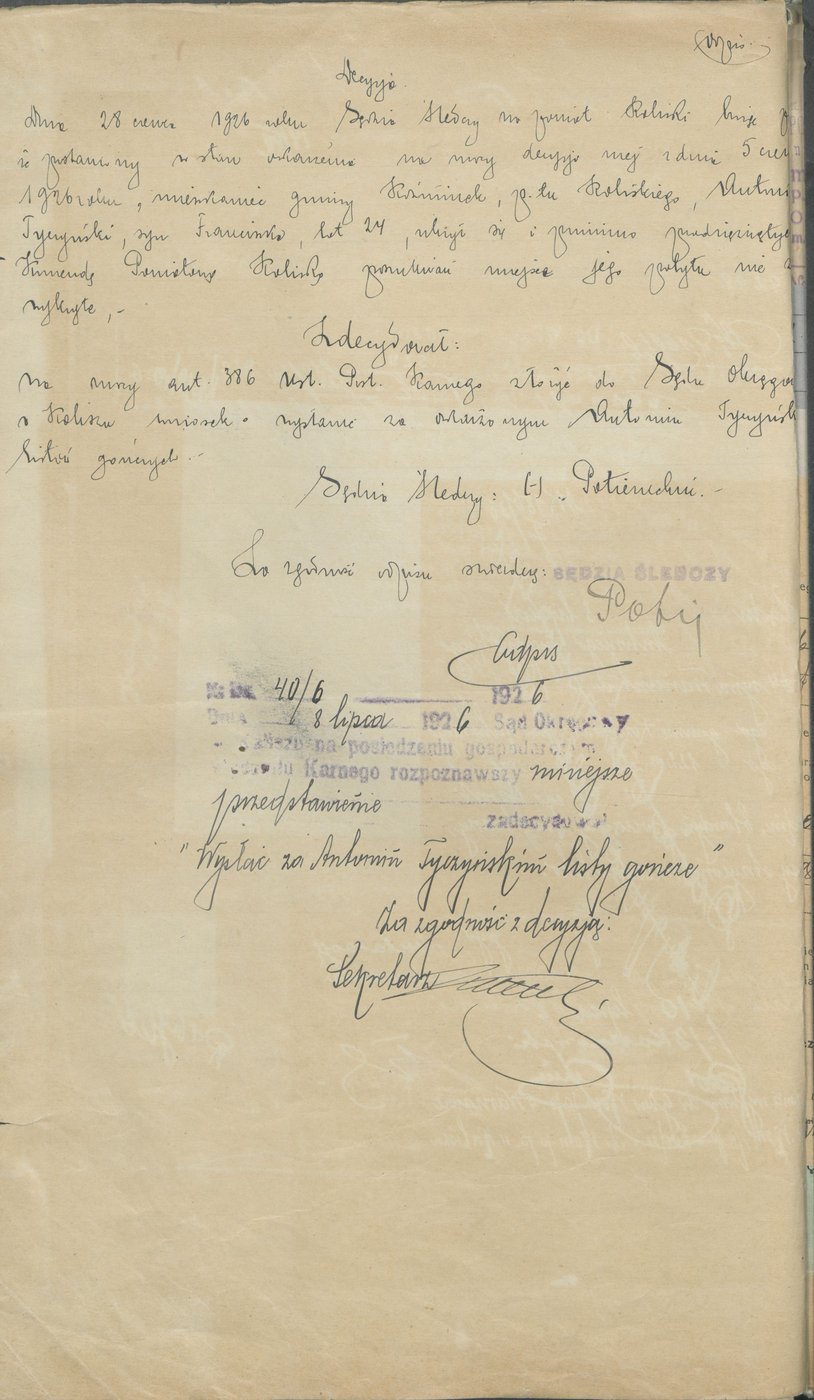 Odpis.
Decyzja.
Dnia 28 czerwca 1926 roku Sędzia Śledczy na powiat Kaliski biorąc p
że postawiony w stan oskarżenia na mocy decyzji mej z dnia 5 czer
1926 roku, mieszkaniec gminy Koźminek, p-tu Kaliskiego, Antoni
Tyczyński, syn Franciszka, lat 24, ukrył się i pomimo przedsięwziętych
Komendę Powiatową Kaliską poszukiwań miejsce jego pobytu nie
wykryte,-
Zdecydował:
na mocy art. 386 Ust. Post. Karnego złożyć do Sądu Okręgow
w Kaliszu wniosek o wysłanie za oskarżonym Antonim Tyczyńsk
listów gończych.-
Sędzia Śledczy: (-)
Za zgodność odpisu świadczy: SĘDZIA ŚLEDCZY
Odpis
40/6 1926
Dnia 8 lipca 1926 Sąd Okręgowy
w Kaliszu na posiedzeniu gospodarczem
Wydziału Karnego rozpoznawszy niniejsze
przedstawienie
zadecydował
"Wysłać za Antonim Tyczyńskim listy gończe"
Za zgodność z decyzją:
Sekretarz